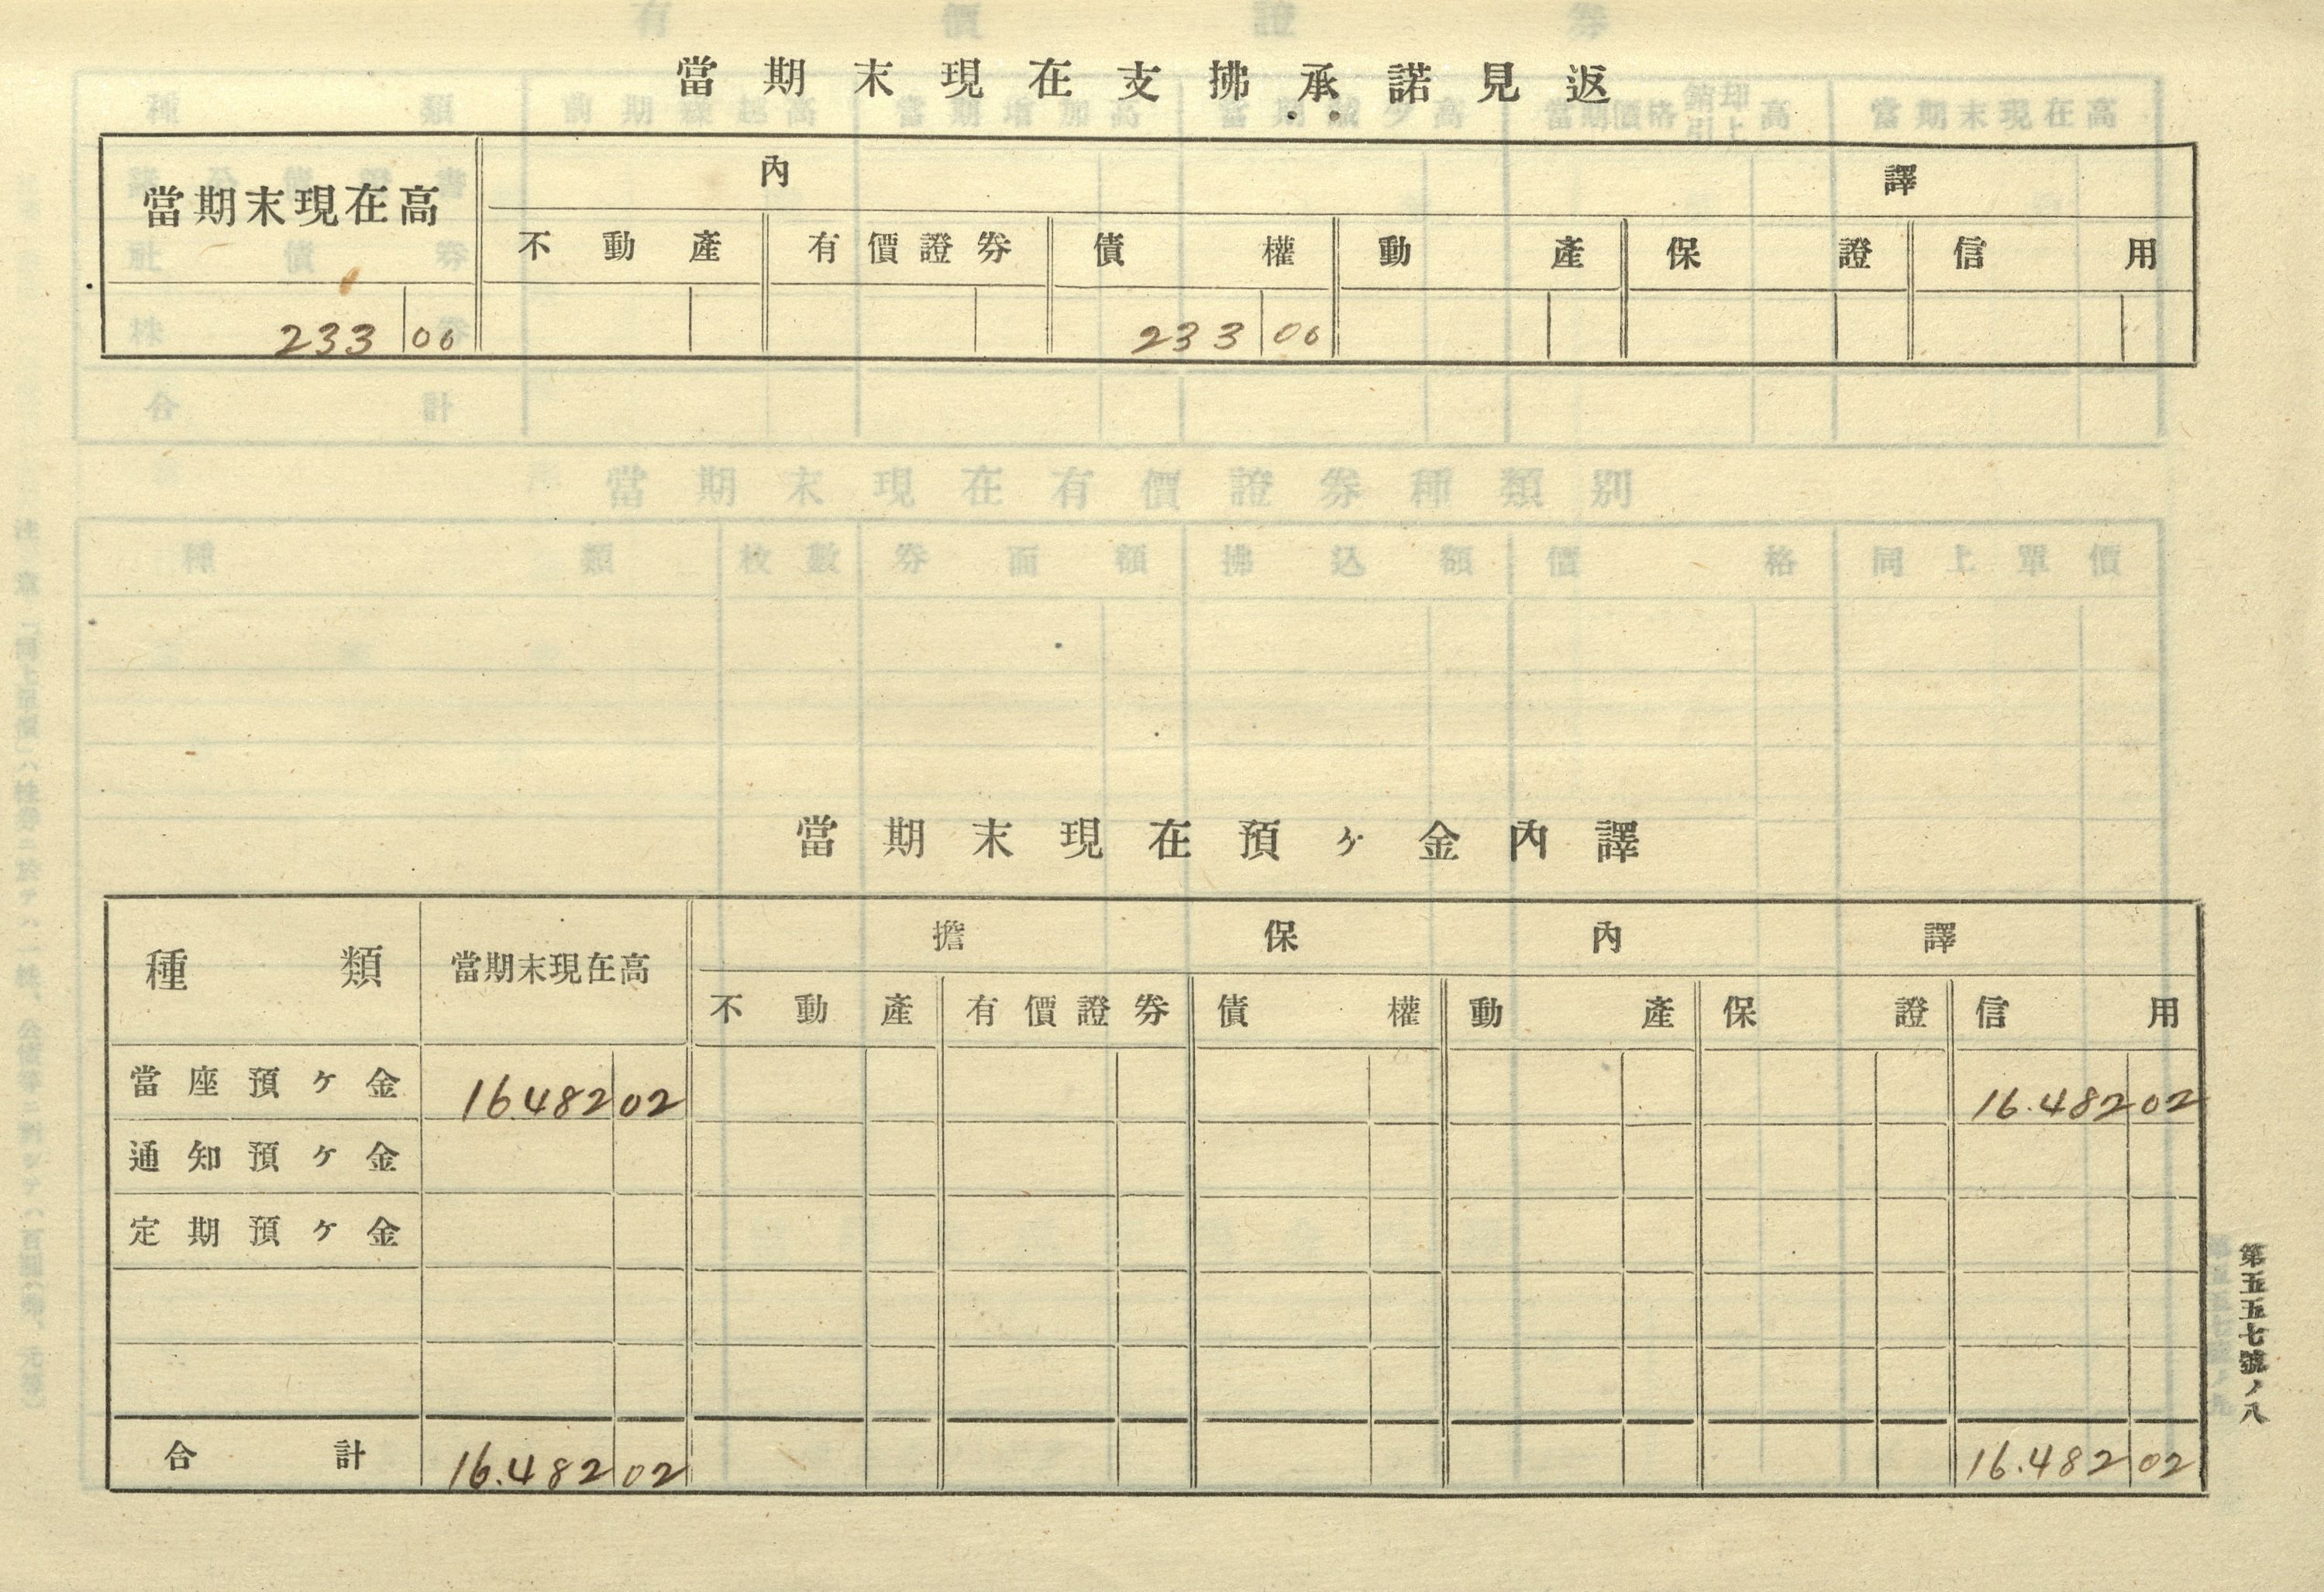 當期末現在支拂承諾見返
當期末現在高 內譯
不動產 有價證券 債權 動產 保證 信用
233 00 233 00
當期末現在預ヶ金內譯
種類 當期末現在高 擔保內譯
不動產 有價證券 債權 動產 保證 信用
當座預ケ金 16.482 02 16.482 02
通知預ケ金
定期預ケ金
合計 16.482 02 16.482 02
第五五七號ノ八